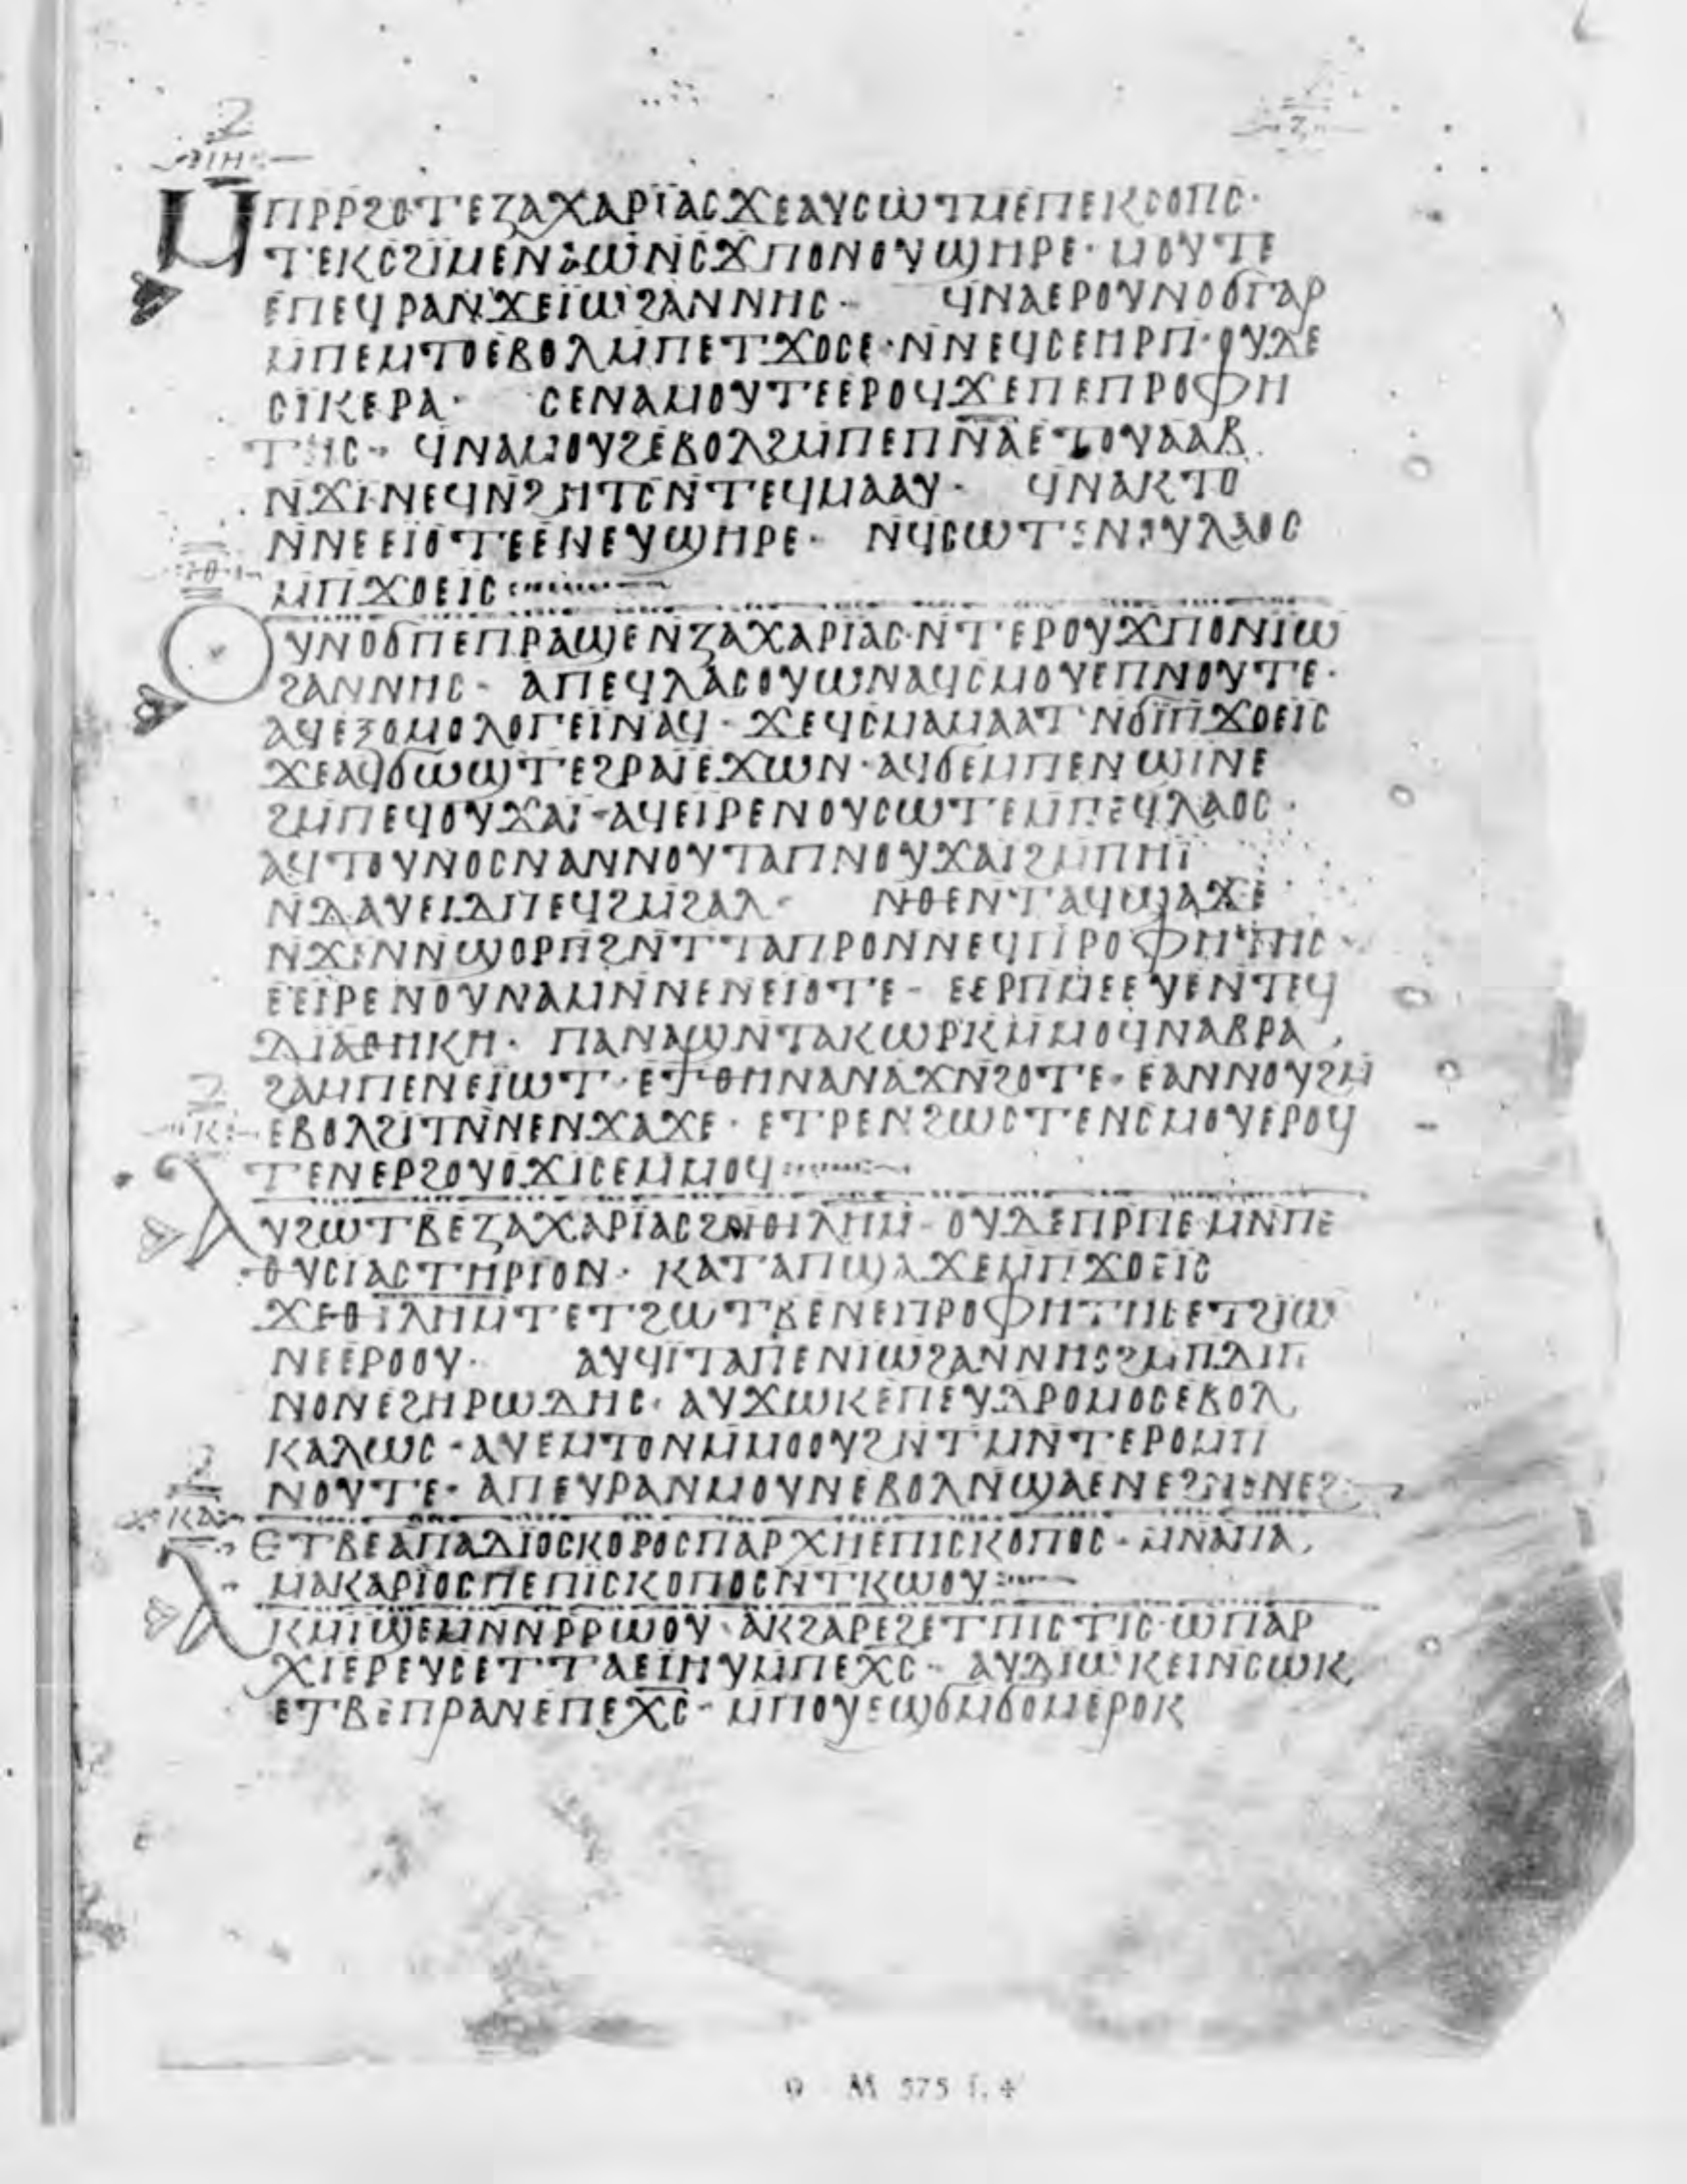 ⲓⲏ
ⲍ
ⲙⲡⲣⲣϩⲟⲧⲉⲍⲁⲭⲁⲣⲓⲁⲥϫⲉⲁⲩⲥⲱⲧⲙⲉⲡⲉⲕⲥⲟⲡⲥ·
ⲧⲉⲕⲥϩⲓⲙⲉⲛⲁⲱⲛⲥϫⲡⲟⲛⲟⲩϣⲏⲣⲉ· ⲙⲟⲩⲧⲉ
ⲉⲡⲉϥⲣⲁⲛϫⲉⲓⲱϩⲁⲛⲛⲏⲥ· ϥⲛⲁⲉⲣⲟⲩⲛⲟϭⲅⲁⲣ
ⲙⲡⲉⲙⲧⲟⲉⲃⲟⲗⲙⲡⲉⲧϫⲟⲥⲉ·ⲛⲛⲉϥⲥⲉⲏⲣⲡ·ⲟⲩⲇⲉ
ⲥⲓⲕⲉⲣⲁ· ⲥⲉⲛⲁⲙⲟⲩⲧⲉⲉⲣⲟϥϫⲉⲡⲉⲡⲣⲟⲫⲏ
ⲧⲏⲥ· ϥⲛⲁⲙⲟⲩϩⲉⲃⲟⲗϩⲙⲡⲉⲡⲛ̅ⲁ̅ⲉⲧⲟⲩⲁⲁⲃ
ⲛϫⲓⲛⲉϥⲛϩⲏⲧⲥⲛⲧⲉϥⲙⲁⲁⲩ· ϥⲛⲁⲕⲧⲟ
ⲛⲛⲉⲉⲓⲟⲧⲉⲉⲛⲉⲩϣⲏⲣⲉ· ⲛϥⲥⲱⲧⲉⲛⲟⲩⲗⲁⲟⲥ
ⲓⲑ
ⲙⲡϫⲟⲉⲓⲥ
ⲟⲩⲛⲟϭⲡⲉⲡⲣⲁϣⲉⲛⲍⲁⲭⲁⲣⲓⲁⲥ·ⲛⲧⲉⲣⲟⲩϫⲡⲟⲛⲓⲱ
ϩⲁⲛⲛⲏⲥ· ⲁⲡⲉϥⲗⲁⲥⲟⲩⲱⲛⲁϥⲥⲙⲟⲩⲉⲡⲛⲟⲩⲧⲉ·
ⲁϥⲉⲝⲟⲙⲟⲗⲟⲅⲉⲓⲛⲁϥ· ϫⲉϥⲥⲙⲁⲙⲁⲁⲧⲛϭⲓⲡϫⲟⲉⲓⲥ
ϫⲉⲁϥϭⲱϣⲧⲉϩⲣⲁⲓⲉϫⲱⲛ·ⲁϥϭⲉⲙⲡⲉⲛϣⲓⲛⲉ
ϩⲙⲡⲉϥⲟⲩϫⲁⲓ·ⲁϥⲉⲓⲣⲉⲛⲟⲩⲥⲱⲧⲉⲙⲡⲉϥⲗⲁⲟⲥ·
ⲁϥⲧⲟⲩⲛⲟⲥⲛⲁⲛⲛⲟⲩⲧⲁⲡⲛⲟⲩϫⲁⲓϩⲙⲡⲏⲓ
ⲛⲇⲁⲩⲉⲓⲇⲡⲉϥϩⲙϩⲁⲗ· ⲛⲑⲉⲛⲧⲁϥϣⲁϫⲉ
ⲛϫⲓⲛⲛϣⲟⲣⲡϩⲛⲧⲧⲁⲡⲣⲟⲛⲛⲉϥⲡⲣⲟⲫⲏⲧⲏⲥ·
ⲉⲉⲓⲣⲉⲛⲟⲩⲛⲁⲙⲛⲛⲉⲛⲉⲓⲟⲧⲉ· ⲉⲉⲣⲡⲙⲉⲉⲩⲉⲛⲧⲉϥ
ⲇⲓⲁⲑⲏⲕⲏ· ⲡⲁⲛⲁϣⲛⲧⲁⲕⲱⲣⲕⲙⲙⲟϥⲛⲁⲃⲣⲁ
ϩⲁⲙⲡⲉⲛⲉⲓⲱⲧ·ⲉϯⲑⲏⲛⲁⲛⲁϫⲛϩⲟⲧⲉ·ⲉⲁⲛⲛⲟⲩϩⲙ
ⲕ
ⲉⲃⲟⲗϩⲓⲧⲛⲛⲉⲛϫⲁϫⲉ·ⲉⲧⲣⲉⲛϩⲱⲥⲧⲉⲛⲥⲙⲟⲩⲉⲣⲟϥ
ⲧⲉⲛⲉⲣϩⲟⲩⲟϫⲓⲥⲉⲙⲙⲟϥ
ⲁⲩϩⲱⲧⲃⲉⲍⲁⲭⲁⲣⲓⲁⲥϩⲛⲑⲓⲗⲏⲙ· ⲟⲩⲇⲉⲡⲣⲡⲉⲙⲛⲡⲉ
ⲑⲩⲥⲓⲁⲥⲧⲏⲣⲓⲟⲛ· ⲕⲁⲧⲁⲡϣⲁϫⲉⲙⲡϫⲟⲉⲓⲥ
ϫⲉⲑⲓⲗⲏⲙⲧⲉⲧϩⲱⲧⲃⲉⲛⲉⲡⲣⲟⲫⲏⲧⲏⲥⲉⲧϩⲓⲱ
ⲛⲉⲉⲣⲟⲟⲩ· ⲁⲩϥⲓⲧⲁⲡⲉⲛⲓⲱϩⲁⲛⲛⲏⲥϩⲙⲡⲇⲓⲡ
ⲛⲟⲛⲉϩⲏⲣⲱⲇⲏⲥ· ⲁⲩϫⲱⲕⲉⲡⲉⲩⲇⲣⲟⲙⲟⲥⲉⲃⲟⲗ
ⲕⲁⲗⲱⲥ·ⲁⲩⲉⲙⲧⲟⲛⲙⲙⲟⲟⲩϩⲛⲧⲙⲛⲧⲉⲣⲟⲙⲡ
ⲛⲟⲩⲧⲉ· ⲁⲡⲉⲩⲣⲁⲛⲙⲟⲩⲛⲉⲃⲟⲗⲛϣⲁⲉⲛⲉϩⲛⲉⲛⲉϩ
ⲕⲁ
ⲉⲧⲃⲉⲁⲡⲁⲇⲓⲟⲥⲕⲟⲣⲟⲥⲡⲁⲣⲭⲏⲉⲡⲓⲥⲕⲟⲡⲟⲥ·ⲙⲛⲁⲡⲁ
ⲙⲁⲕⲁⲣⲓⲟⲥⲡⲉⲡⲓⲥⲕⲟⲡⲟⲥⲛⲧⲕⲱⲟⲩ
ⲁⲕⲙⲓϣⲉⲙⲛⲛⲣⲣⲱⲟⲩ·ⲁⲕϩⲁⲣⲉϩⲉⲧⲡⲓⲥⲧⲓⲥ·ⲱⲡⲁⲣ
ⲭⲓⲉⲣⲉⲩⲥⲉⲧⲧⲁⲉⲓⲏⲩⲙⲡⲉⲭ̅ⲥ̅· ⲁⲩⲇⲓⲱⲕⲉⲓⲛⲥⲱⲕ
ⲉⲧⲃⲉⲡⲣⲁⲛⲉⲡⲉⲭ̅ⲥ̅· ⲙⲡⲟⲩⲉϣϭⲙϭⲟⲙⲉⲣⲟⲕ
9 M 575 f. 4